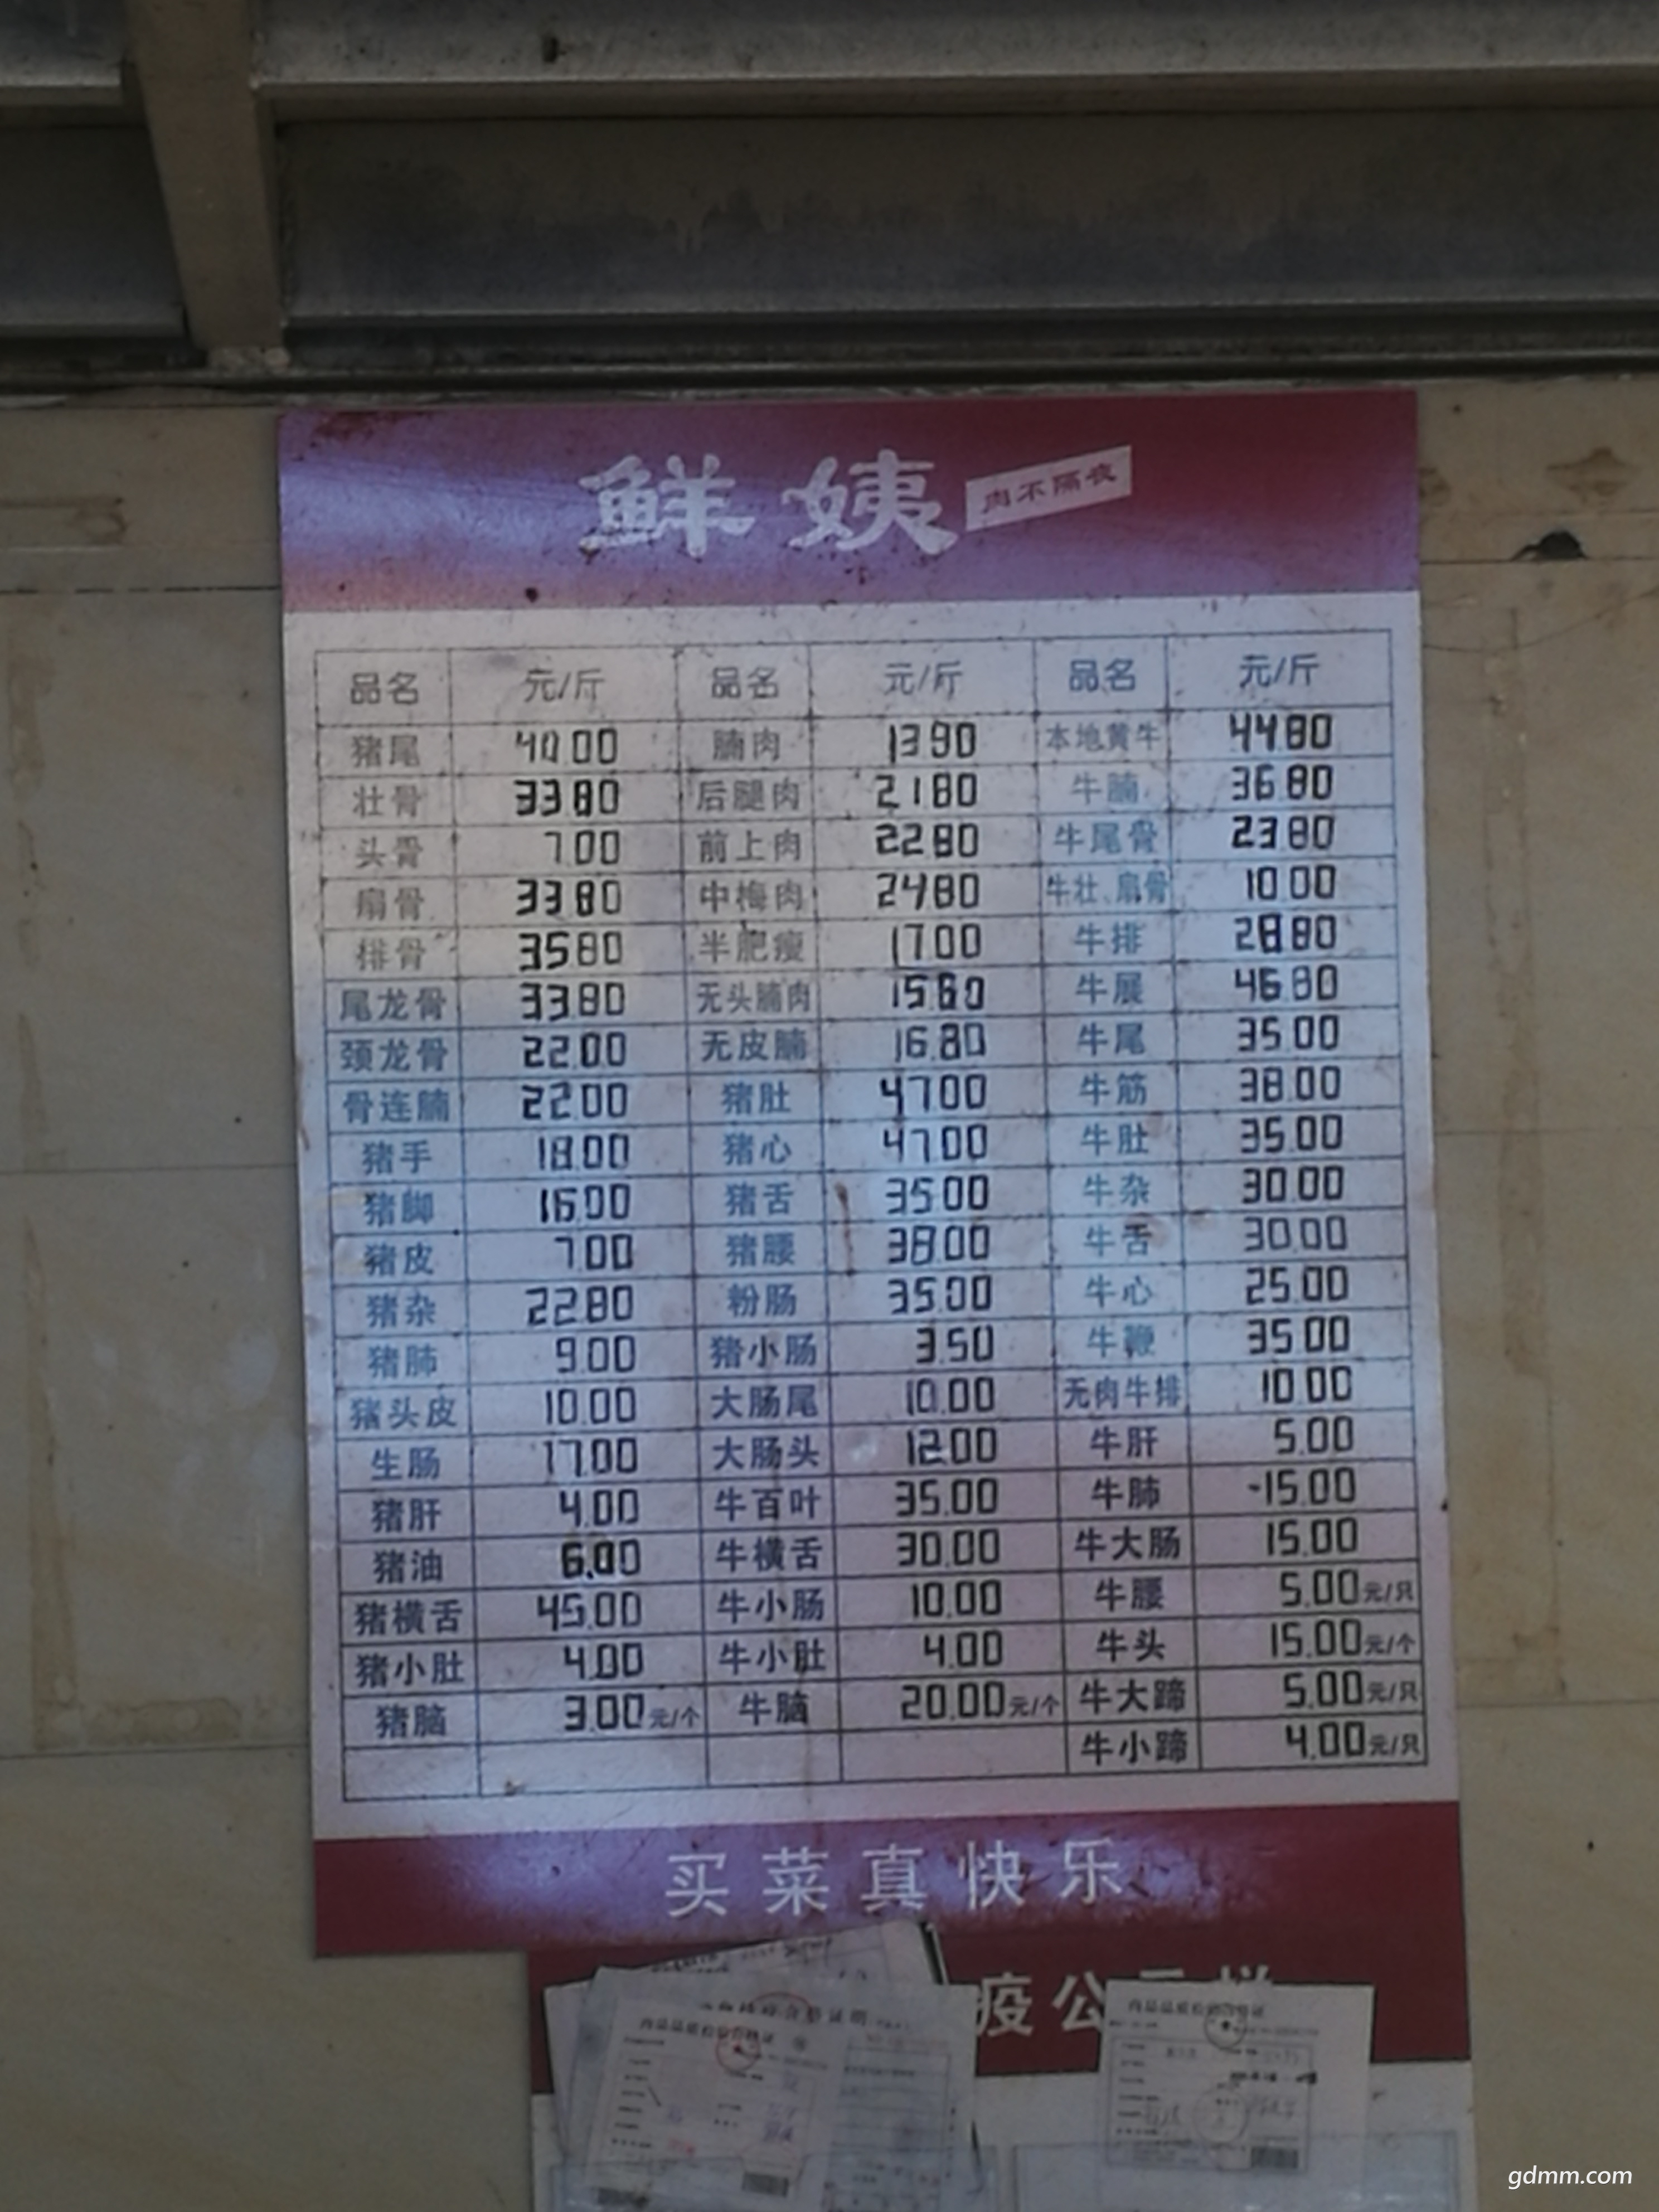 鲜姨 肉不隔夜
品名 元/斤 品名 元/斤 品名 元/斤
猪尾 40.00 腩肉 13.90 本地黄牛 44.80
壮骨 33.80 后腿肉 21.80 牛腩 36.80
头骨 7.00 前上肉 22.80 牛尾骨 23.80
扇骨 33.80 中梅肉 24.80 牛壮、扇骨 10.00
排骨 35.80 半肥瘦 17.00 牛排 28.80
尾龙骨 33.80 无头腩肉 15.60 牛展 46.80
颈龙骨 22.00 无皮腩 16.80 牛尾 35.00
骨连腩 22.00 猪肚 47.00 牛筋 38.00
猪手 18.00 猪心 47.00 牛肚 35.00
猪脚 16.00 猪舌 35.00 牛杂 30.00
猪皮 7.00 猪腰 38.00 牛舌 30.00
猪杂 22.80 粉肠 35.00 牛心 25.00
猪肺 9.00 猪小肠 3.50 牛鞭 35.00
猪头皮 10.00 大肠尾 10.00 无肉牛排 10.00
生肠 17.00 大肠头 12.00 牛肝 5.00
猪肝 4.00 牛百叶 35.00 牛肺 15.00
猪油 6.00 牛横舌 30.00 牛大肠 15.00
猪横舌 45.00 牛小肠 10.00 牛腰 5.00元/只
猪小肚 4.00 牛小肚 4.00 牛头 15.00元/个
猪脑 3.00元/个 牛脑 20.00元/个 牛大蹄 5.00元/只
牛小蹄 4.00元/只
买菜真快乐
疫公
gdmm.com